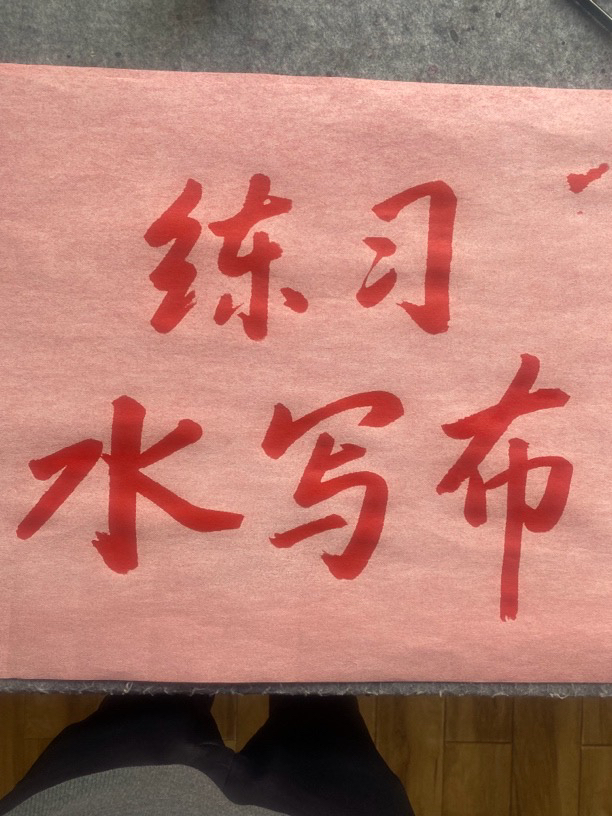 练习
水写布